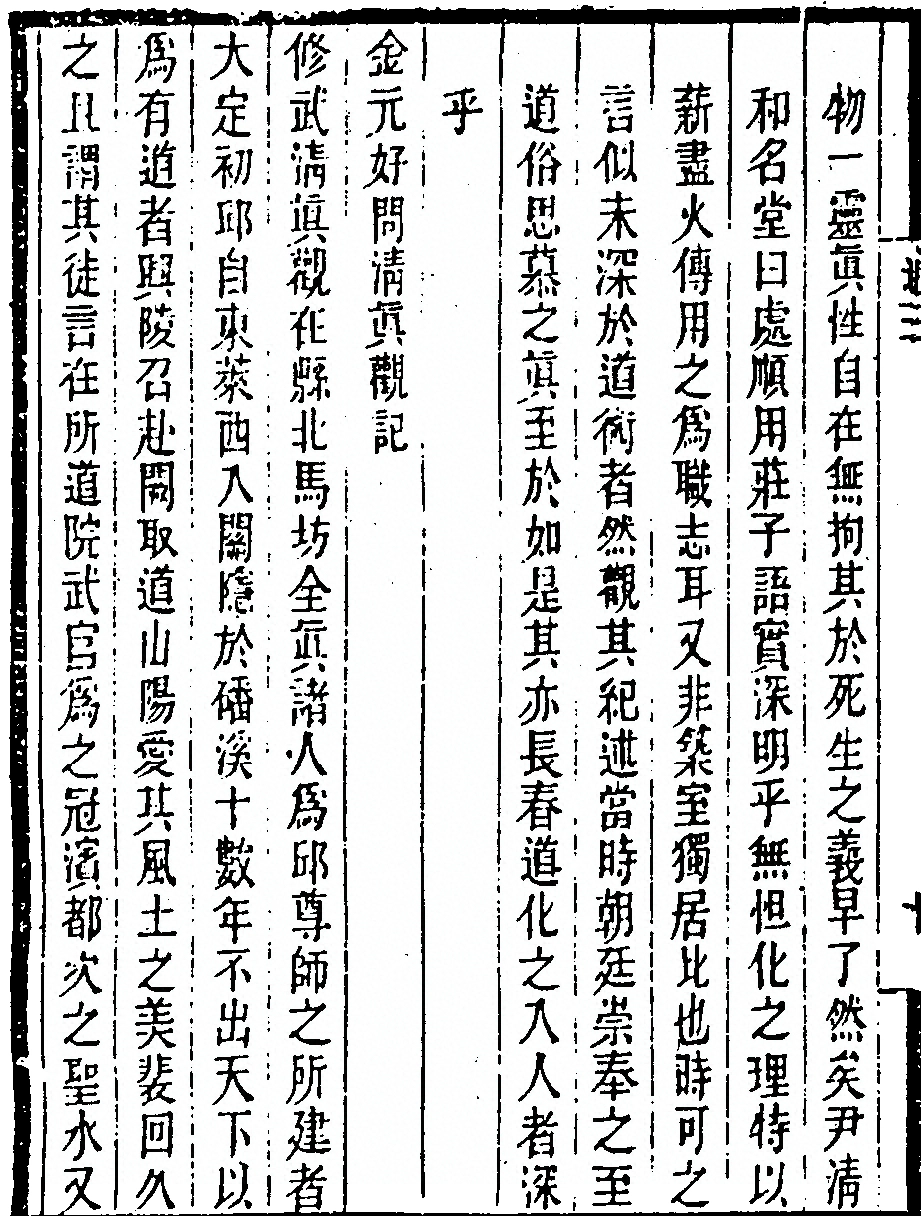 物一靈眞性自在無拘其於死生之義早了然矣尹清
和名堂曰處順用莊子語實深明乎無怛化之理特以
薪盡火傳用之爲職志耳又非築室獨居比也時可之
言似未深於道術者然觀其紀述當時朝廷崇奉之至
道俗思慕之眞至於如是其亦長春道化之入人者深
乎
金元好問清眞觀記
修武清眞觀在縣北馬坊全眞諸人爲邱尊師之所建者
大定初邱自東萊西入關隱於磻溪十數年不出天下以
爲有道者興陵召赴闕取道山陽愛其風土之美裴回久
之且謂其徒言在所道院武官爲之冠濱都次之聖水又